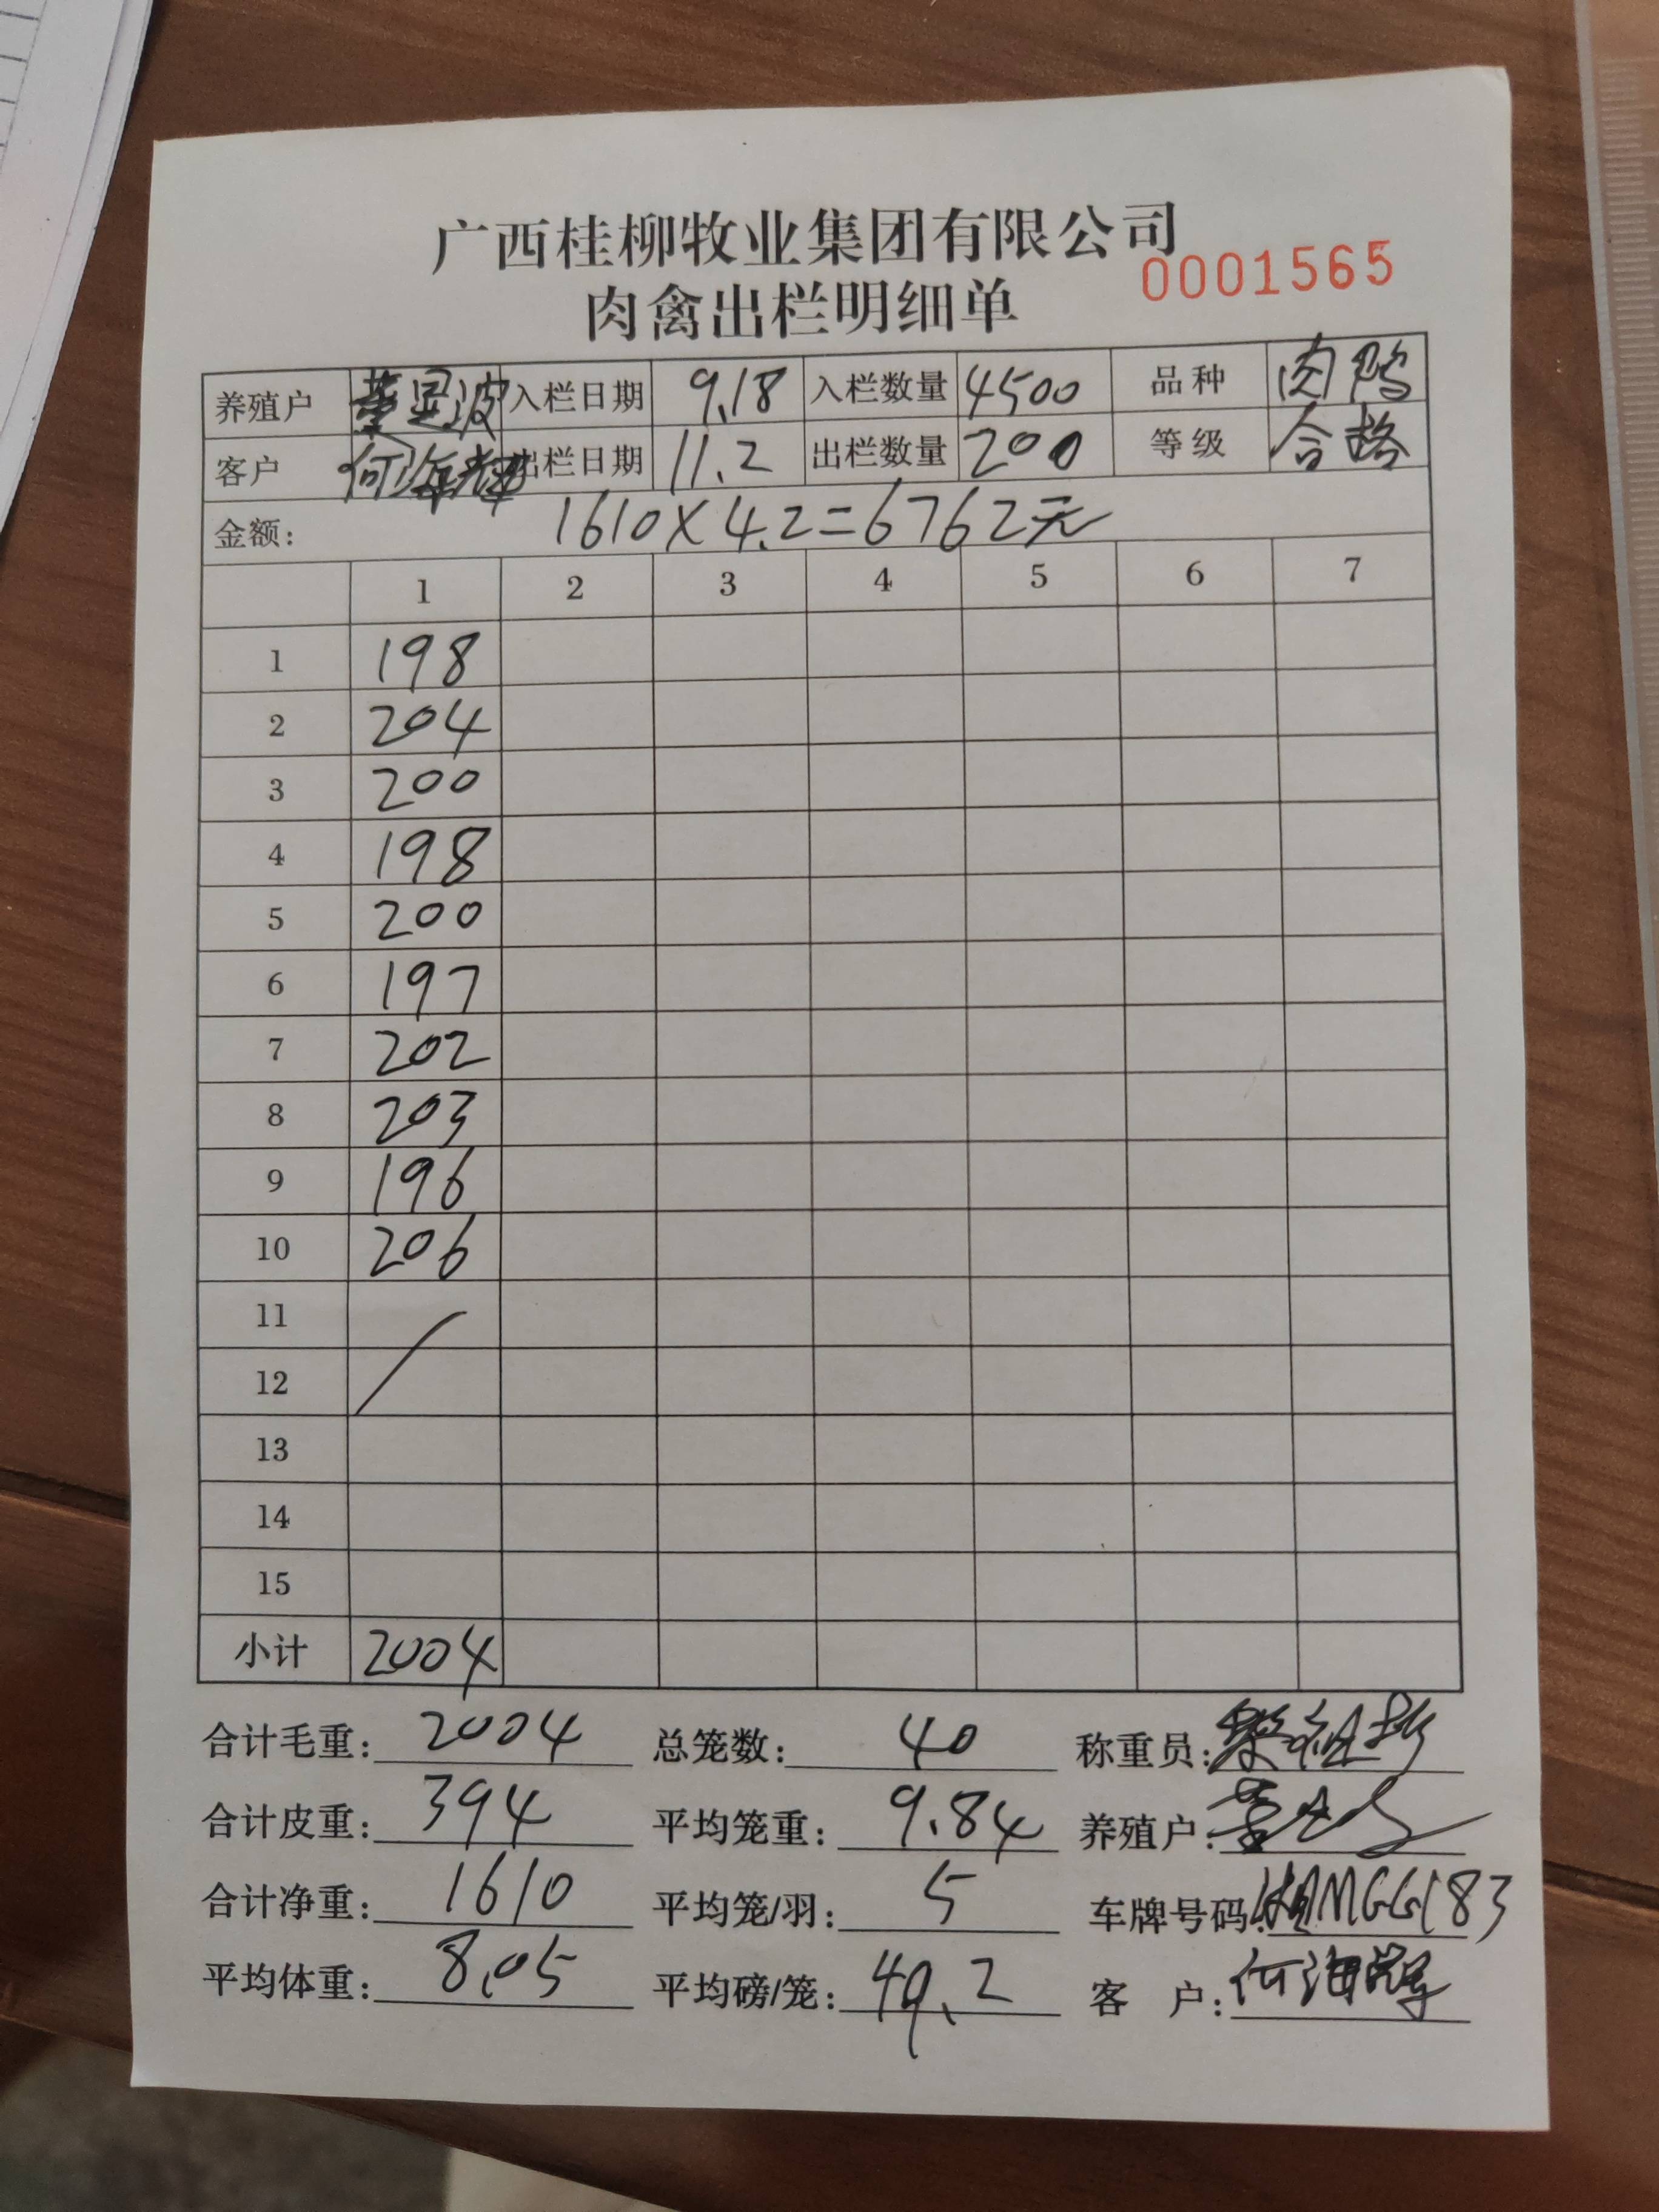 广西桂柳牧业集团有限公司
0001565
肉禽出栏明细单
养殖户 董显波 入栏日期 9.18 入栏数量 4500 品种 肉鸭
客户 何海辉 出栏日期 11.2 出栏数量 200 等级 合格
金额： 1610×4.2=6762元
1 2 3 4 5 6 7
1 198
2 204
3 200
4 198
5 200
6 197
7 202
8 203
9 196
10 206
11
12
13
14
15
小计 2004
合计毛重： 2004 总笼数： 40 称重员：
合计皮重： 394 平均笼重： 9.84 养殖户：
合计净重： 1610 平均笼/羽： 5 车牌号码：
平均体重： 8.05 平均磅/笼： 49.2 客 户： 何海辉